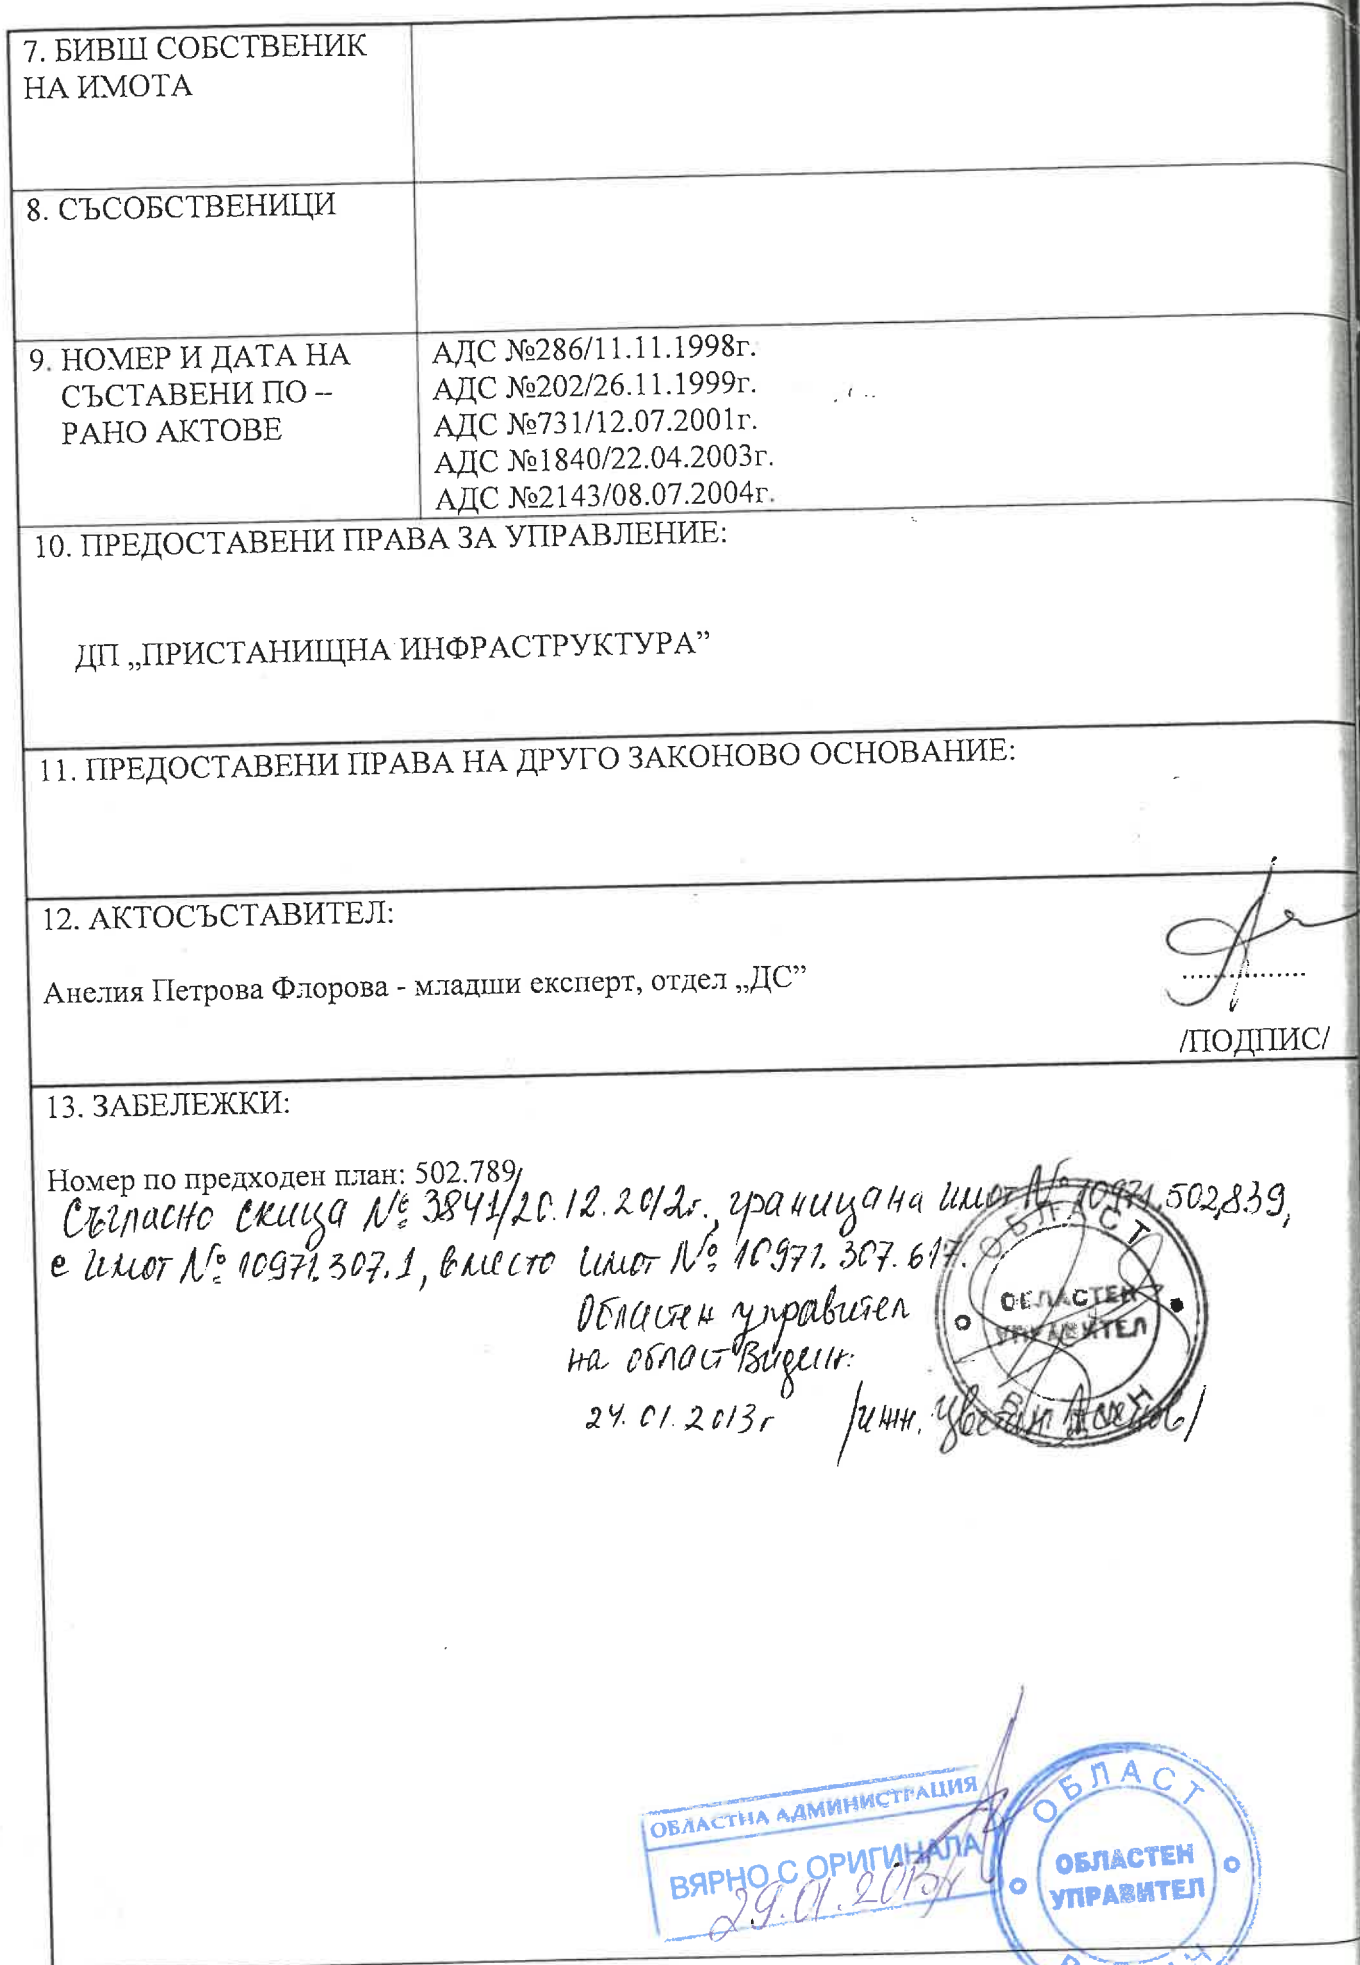 7. БИВШ СОБСТВЕНИК
НА ИМОТА
8. СЪСОБСТВЕНИЦИ
9. НОМЕР И ДАТА НА
СЪСТАВЕНИ ПО –
РАНО АКТОВЕ
АДС №286/11.11.1998г.
АДС №202/26.11.1999г.
АДС №731/12.07.2001г.
АДС №1840/22.04.2003г.
АДС №2143/08.07.2004г.
10. ПРЕДОСТАВЕНИ ПРАВА ЗА УПРАВЛЕНИЕ:
ДП „ПРИСТАНИЩНА ИНФРАСТРУКТУРА”
11. ПРЕДОСТАВЕНИ ПРАВА НА ДРУГО ЗАКОНОВО ОСНОВАНИЕ:
12. АКТОСЪСТАВИТЕЛ:
Анелия Петрова Флорова - младши експерт, отдел „ДС”
................
/ПОДПИС/
13. ЗАБЕЛЕЖКИ:
Номер по предходен план: 502.789
Съгласно скица № 3841/20.12.2012г., граница на имот № 10971.502.839,
е имот № 10971.307.1, вместо имот № 10971.307.617.
Областен управител
на област Видин:
24.01.2013г /инж. Цветан Асенов/
ОБЛАСТ
ОБЛАСТЕН
УПРАВИТЕЛ
ОБЛАСТНА АДМИНИСТРАЦИЯ
ВЯРНО С ОРИГИНАЛА
29.01.2013г
ОБЛАСТ
ОБЛАСТЕН
УПРАВИТЕЛ